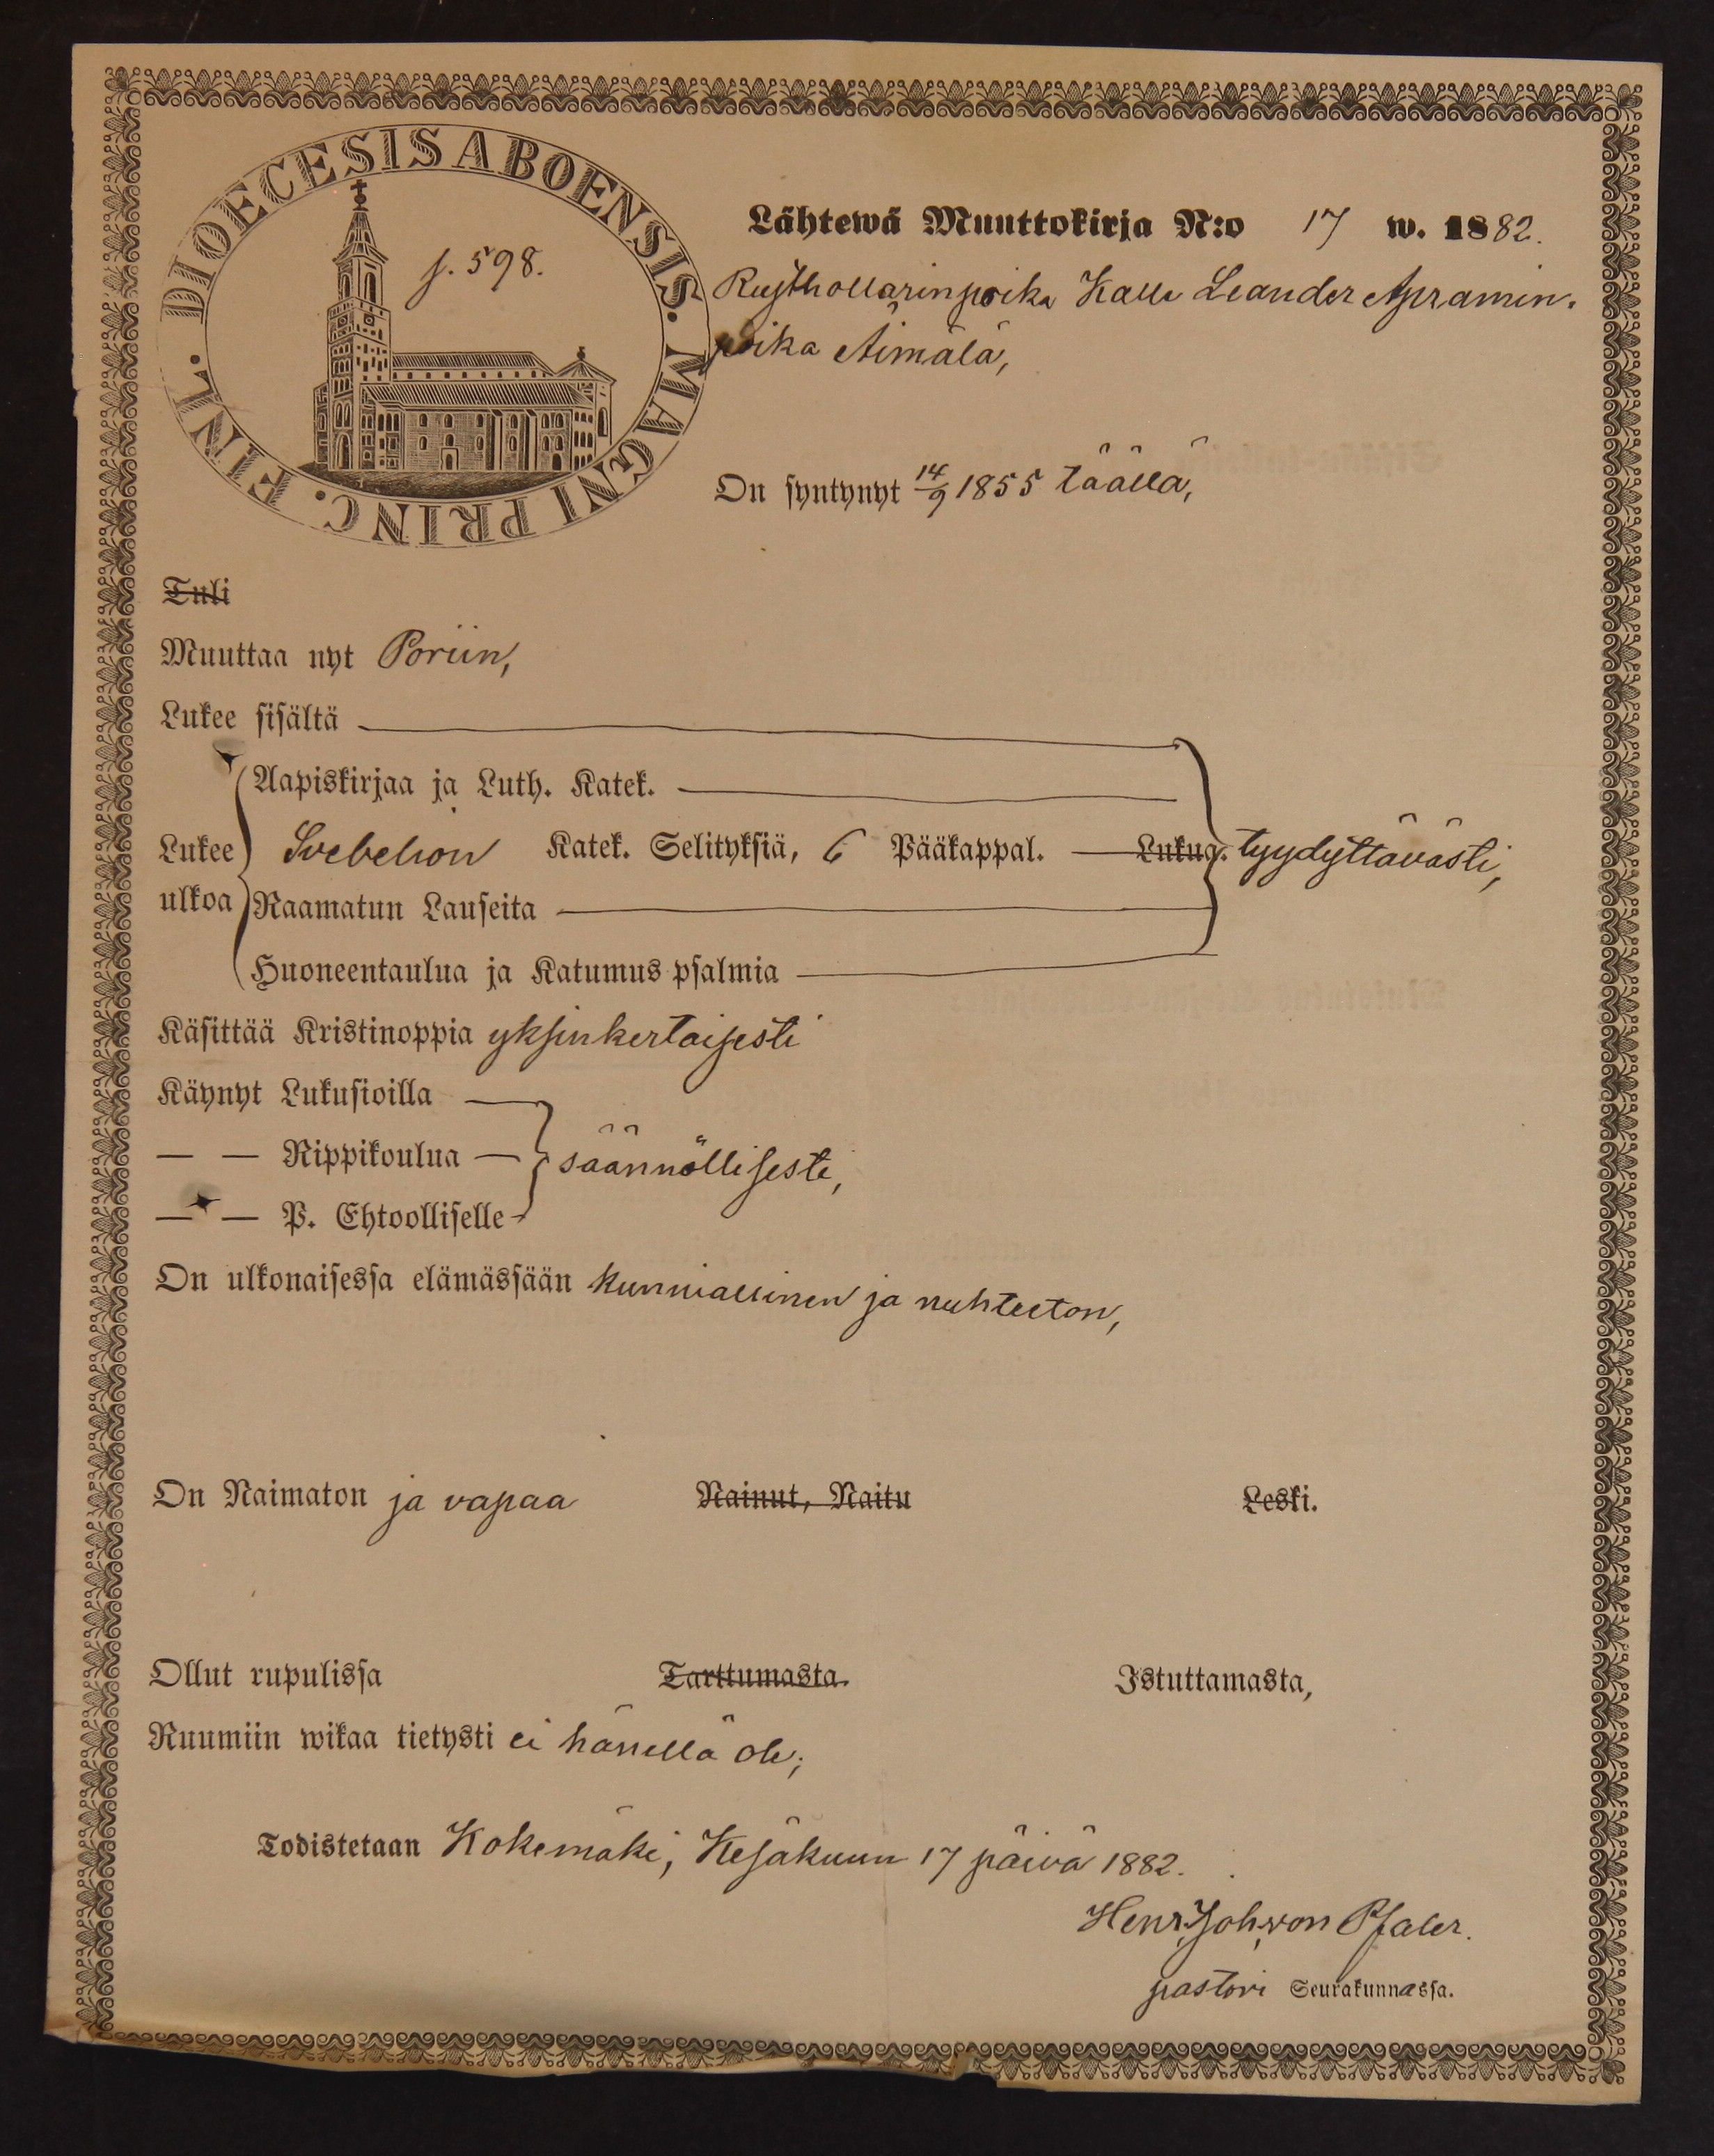 DIOECESIS ABOENSIS. MAGNI PRINC. FINL.
p. 598.
Lähtewä Muuttokirja N:o 17 w. 1882.
Rusthollarinpoika Kalle Leander Apramin-
poika Äimälä,
On syntynyt 14/9 1855 täällä,
Tuli
Muuttaa nyt Poriin,
Lukee sisältä
Aapiskirjaa ja Luth. Katek.
Lukee Svebelion Katek. Selityksiä, 6 Pääkappal. Lukua. tyydyttävästi,
ulkoa Raamatun Lauseita
Huoneentaulua ja Katumus psalmia
Käsittää Kristinoppia yksinkertaisesti
Käynyt Lukusioilla
— — Rippikoulua säännöllisesti,
— — P. Ehtoolliselle
On ulkonaisessa elämässään kunniallinen ja nuhteeton,
On Naimaton ja vapaa Nainut, Naitu Leski.
Ollut rupulissa Tarttumasta. Istuttamasta,
Ruumiin wikaa tietysti ei hänellä ole;
Todistetaan Kokemäki, Kesäkuun 17 päivä 1882.
Henr. Joh. von Pfaler.
pastori Seurakunnassa.